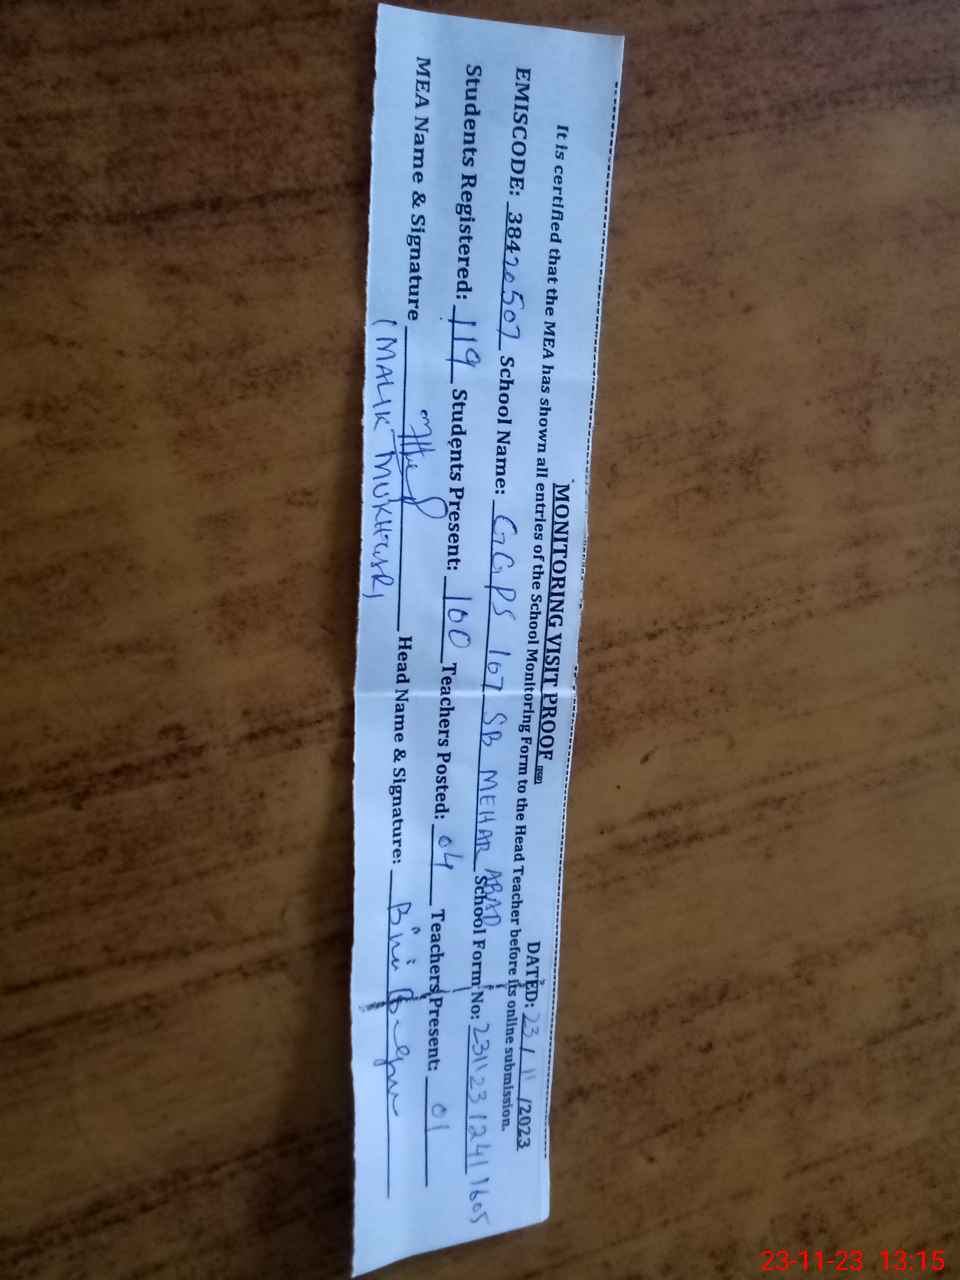 MONITORING VISIT PROOF
DATED: 23/11/2023
It is certified that the MEA has shown all entries of the School Monitoring Form to the Head Teacher before its online submission.
EMISCODE: 38420507 School Name: GGPS 107 SB MEHAR ABAD School Form No: 231123124111605
Students Registered: 119 Students Present: 100 Teachers Posted: 04 Teachers Present: 01
MEA Name & Signature Head Name & Signature: Bibi Begum
(MALIK MUKHTAR)
23-11-23 13:15